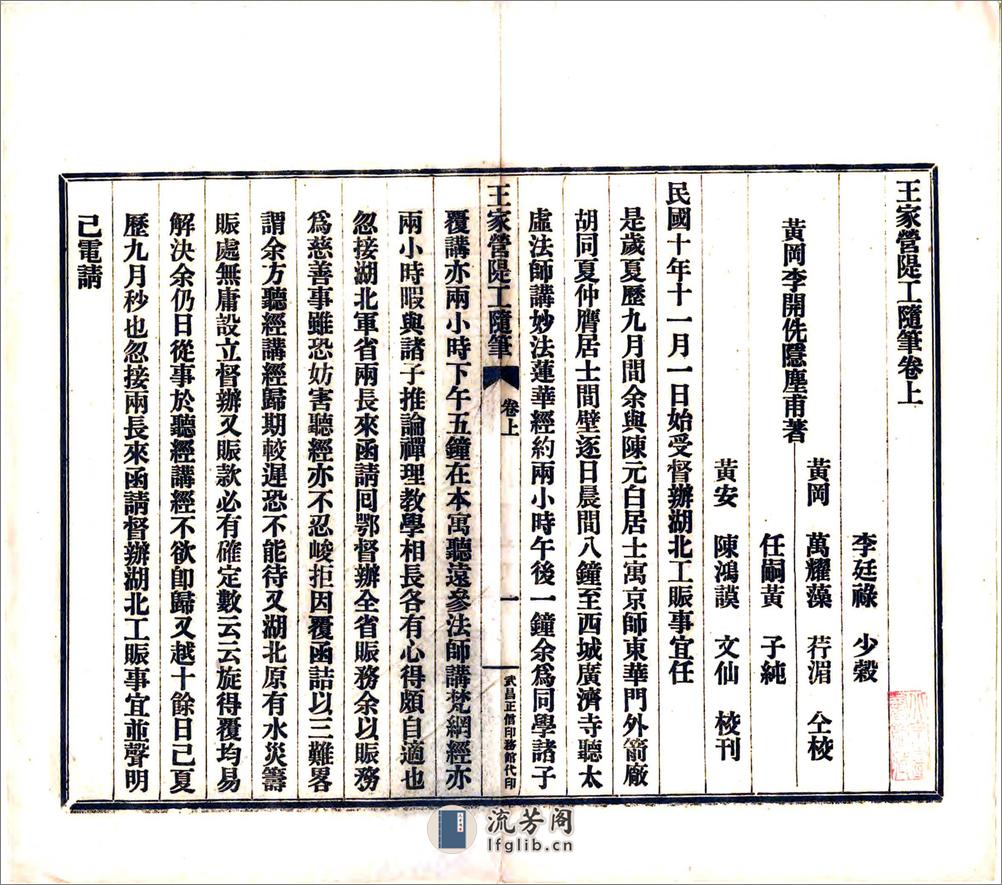 王家營隄工隨筆卷上
李廷祿　少穀
黃岡李開侁隱塵甫著　黃岡　萬耀藻　荇湄　仝校
任嗣黃　子純
黃安　陳鴻謨　文仙　校刊
民國十年十一月一日始受督辦湖北工賑事宜任
是歲夏歷九月間余與陳元白居士寓京師東華門外箭廠
胡同夏仲膺居士間壁逐日晨間八鐘至西城廣濟寺聽太
虛法師講妙法蓮華經約兩小時午後一鐘余爲同學諸子
王家營隄工隨筆　卷上　一　武昌正信印務館代印
覆講亦兩小時下午五鐘在本寓聽遠參法師講梵網經亦
兩小時暇與諸子推論禪理教學相長各有心得頗自適也
忽接湖北軍省兩長來函請囘鄂督辦全省賑務余以賑務
爲慈善事雖恐妨害聽經亦不忍峻拒因覆函詰以三難畧
謂余方聽經講經歸期較遲恐不能待又湖北原有水災籌
賑處無庸設立督辦又賑款必有確定數云云旋得覆均易
解決余仍日從事於聽經講經不欲卽歸又越十餘日已夏
歷九月秒也忽接兩長來函請督辦湖北工賑事宜並聲明
已電請
流芳阁
lfglib.cn